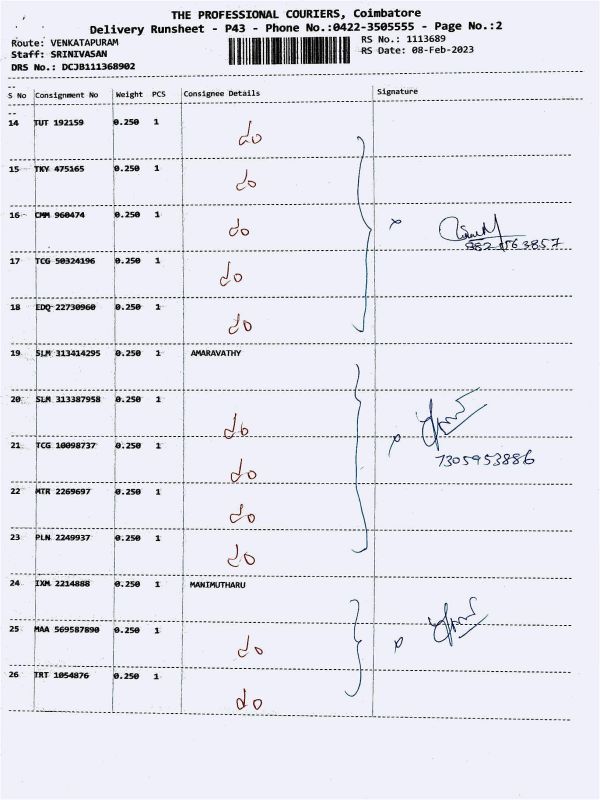 THE PROFESSIONAL COURIERS, Coimbatore
Delivery Runsheet - P43 - Phone No.:0422-3505555 - Page No.:2
Route: VENKATAPURAM
RS No.: 1113689
Staff: SRINIVASAN
RS Date: 08-Feb-2023
DRS No.: DCJB111368902
S No Consignment No Weight PCS Consignee Details Signature
14 TUT 192159 0.250 1 do
15 TKY 475165 0.250 1 do
16 CMM 960474 0.250 1 do
17 TCG 50324196 0.250 1 do
18 EDQ 22730960 0.250 1 do
19 SLM 313414295 0.250 1 AMARAVATHY
20 SLM 313387958 0.250 1 do
7305953886
21 TCG 10098737 0.250 1 do
22 MTR 2269697 0.250 1 do
23 PLN 2249937 0.250 1 do
24 IXM 2214888 0.250 1 MANIMUTHARU
25 MAA 569587890 0.250 1 do
26 TRT 1054876 0.250 1 do